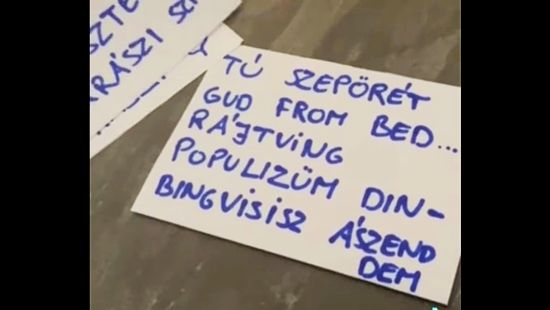 SZTE
ARÁSZI SZ
TÚ SZEPÖRÉT
GUD FROM BED...
RÁJTVING
POPULIZÜM DIN-
BINGVISISZ ÁSZEND
DEM